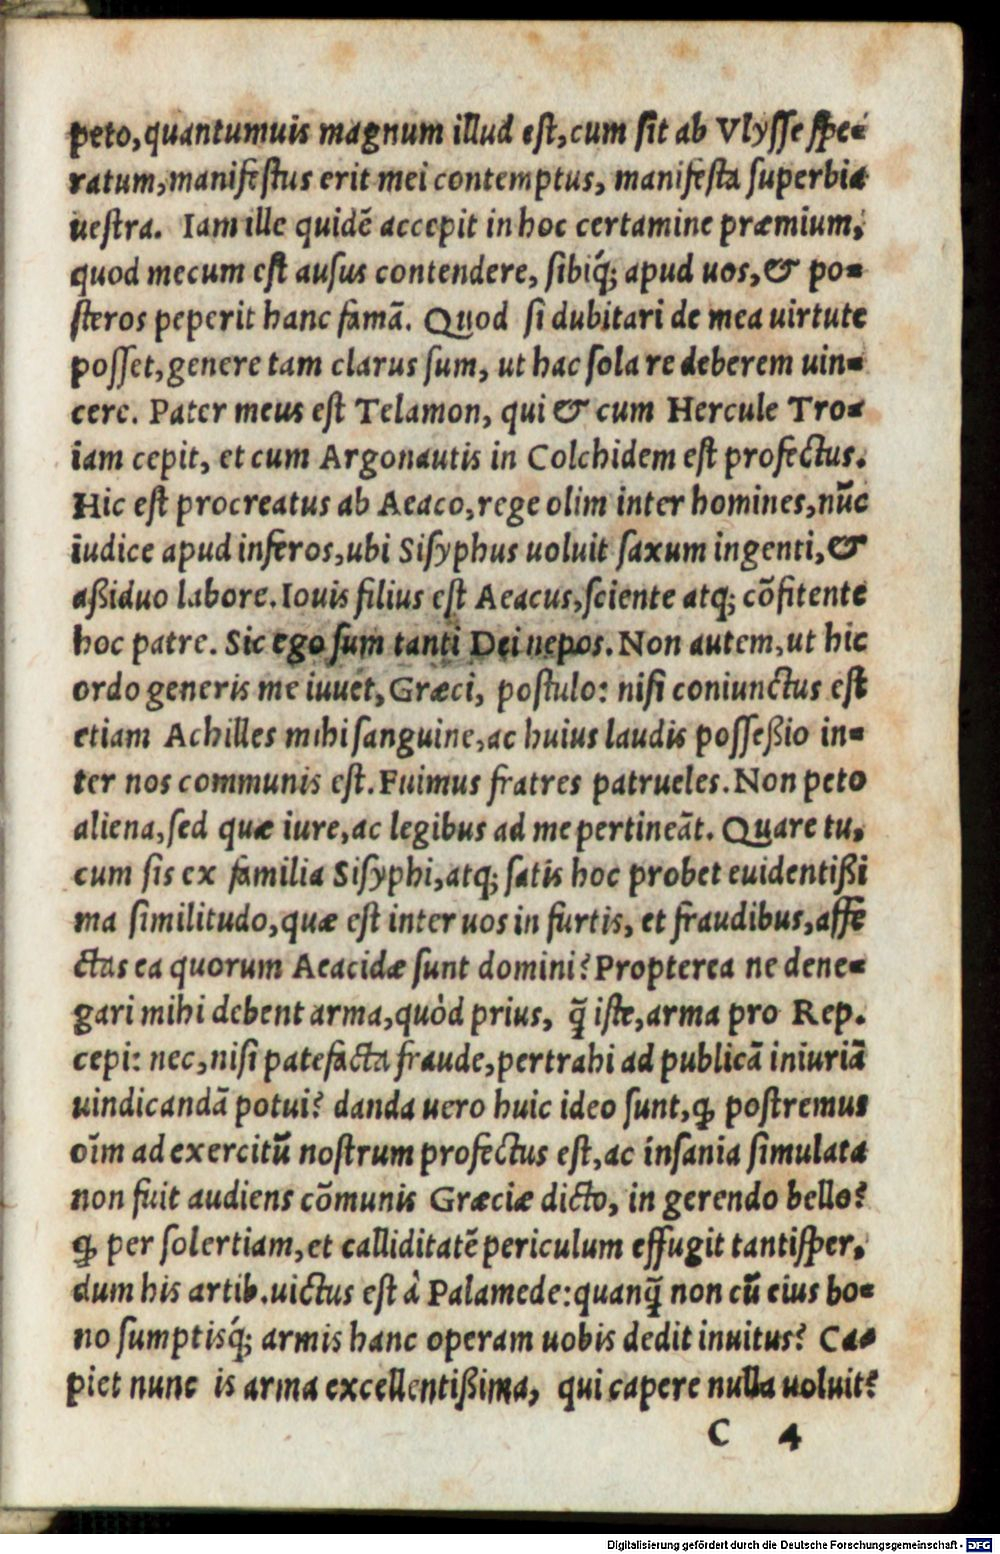 peto, quantumuis magnum illud est, cum sit ab Vlysse spe-
ratum, manifestus erit mei contemptus, manifesta superbia
uestra. Iam ille quidē accepit in hoc certamine præmium,
quod mecum est ausus contendere, sibiq́; apud uos, & po-
steros peperit hanc famā. Quod si dubitari de mea uirtute
posset, genere tam clarus sum, ut hac sola re deberem uin-
cere. Pater meus est Telamon, qui & cum Hercule Tro-
iam cepit, et cum Argonautis in Colchidem est profectus.
Hic est procreatus ab Aeaco, rege olim inter homines, nūc
iudice apud inferos, ubi Sisyphus uoluit saxum ingenti, &
aßiduo labore. Iouis filius est Aeacus, sciente atq; cōfitente
hoc patre. Sic ego sum tanti Dei nepos. Non autem, ut hic
ordo generis me iuuet, Græci, postulo: nisi coniunctus est
etiam Achilles mihi sanguine, ac huius laudis posseßio in-
ter nos communis est. Fuimus fratres patrueles. Non peto
aliena, sed quæ iure, ac legibus ad me pertineāt. Quare tu,
cum sis ex familia Sisyphi, atq; satis hoc probet euidentißi
ma similitudo, quæ est inter uos in furtis, et fraudibus, affe
ctas ea quorum Aeacidæ sunt domini? Propterea ne dene-
gari mihi debent arma, quòd prius, q̄ iste, arma pro Rep.
cepi: nec, nisi patefacta fraude, pertrahi ad publicā iniuriā
uindicandā potui? danda uero huic ideo sunt, ꝙ postremus
oīm ad exercitū nostrum profectus est, ac insania simulata
non fuit audiens cōmunis Græciæ dicto, in gerendo bello?
ꝙ per solertiam, et calliditatē periculum effugit tantisper,
dum his artib. uictus est à Palamede: quanq̄ non cū eius bo-
no sumptisq́; armis hanc operam uobis dedit inuitus? Ca-
piet nunc is arma excellentißima, qui capere nulla uoluit?
C 4
Digitalisierung gefördert durch die Deutsche Forschungsgemeinschaft - DFG